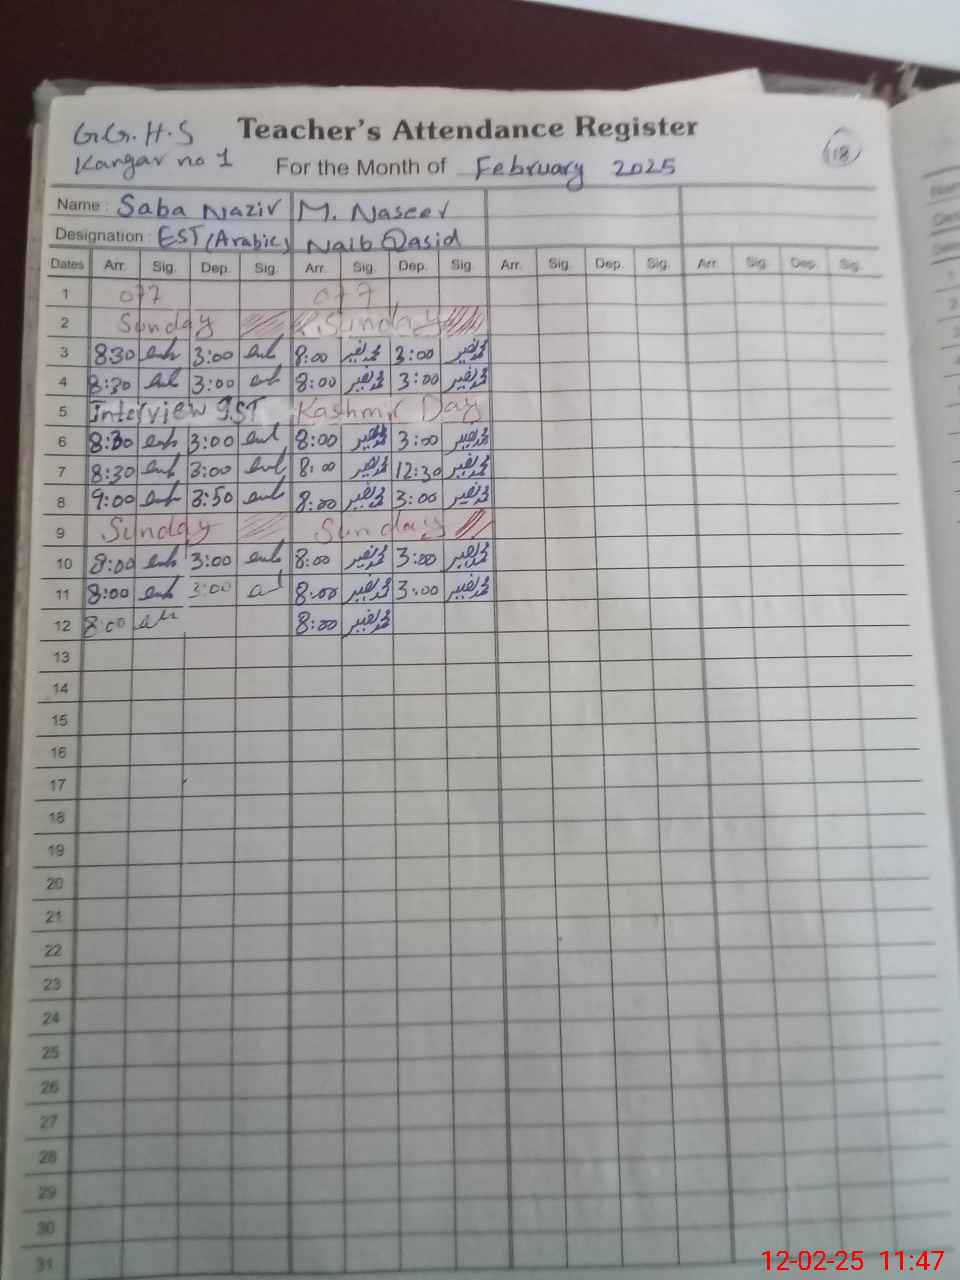 G.G.H.S
Kangar no 1
Teacher's Attendance Register
18
For the Month of February 2025
Name: Saba Nazir M. Naseer
Designation: EST (Arabic) Naib Qasid
Dates Arr. Sig. Dep. Sig. Arr. Sig. Dep. Sig. Arr. Sig. Dep. Sig. Arr. Sig. Dep. Sig.
1
2 Sunday Sunday
3 8:30 3:00 8:00 محمد نصیر 3:00 محمد نصیر
4 8:30 3:00 8:00 محمد نصیر 3:00 محمد نصیر
5 Interview Kashmir Day
6 8:30 3:00 8:00 محمد نصیر 3:00 محمد نصیر
7 8:30 3:00 8:00 محمد نصیر 12:30 محمد نصیر
8 9:00 3:50 8:00 محمد نصیر 3:00 محمد نصیر
9 Sunday Sunday
10 8:00 3:00 8:00 محمد نصیر 3:00 محمد نصیر
11 8:00 3:00 8:00 محمد نصیر 3:00 محمد نصیر
12 8:00 8:00 محمد نصیر
13
14
15
16
17
18
19
20
21
22
23
24
25
26
27
28
29
30
31
12-02-25 11:47